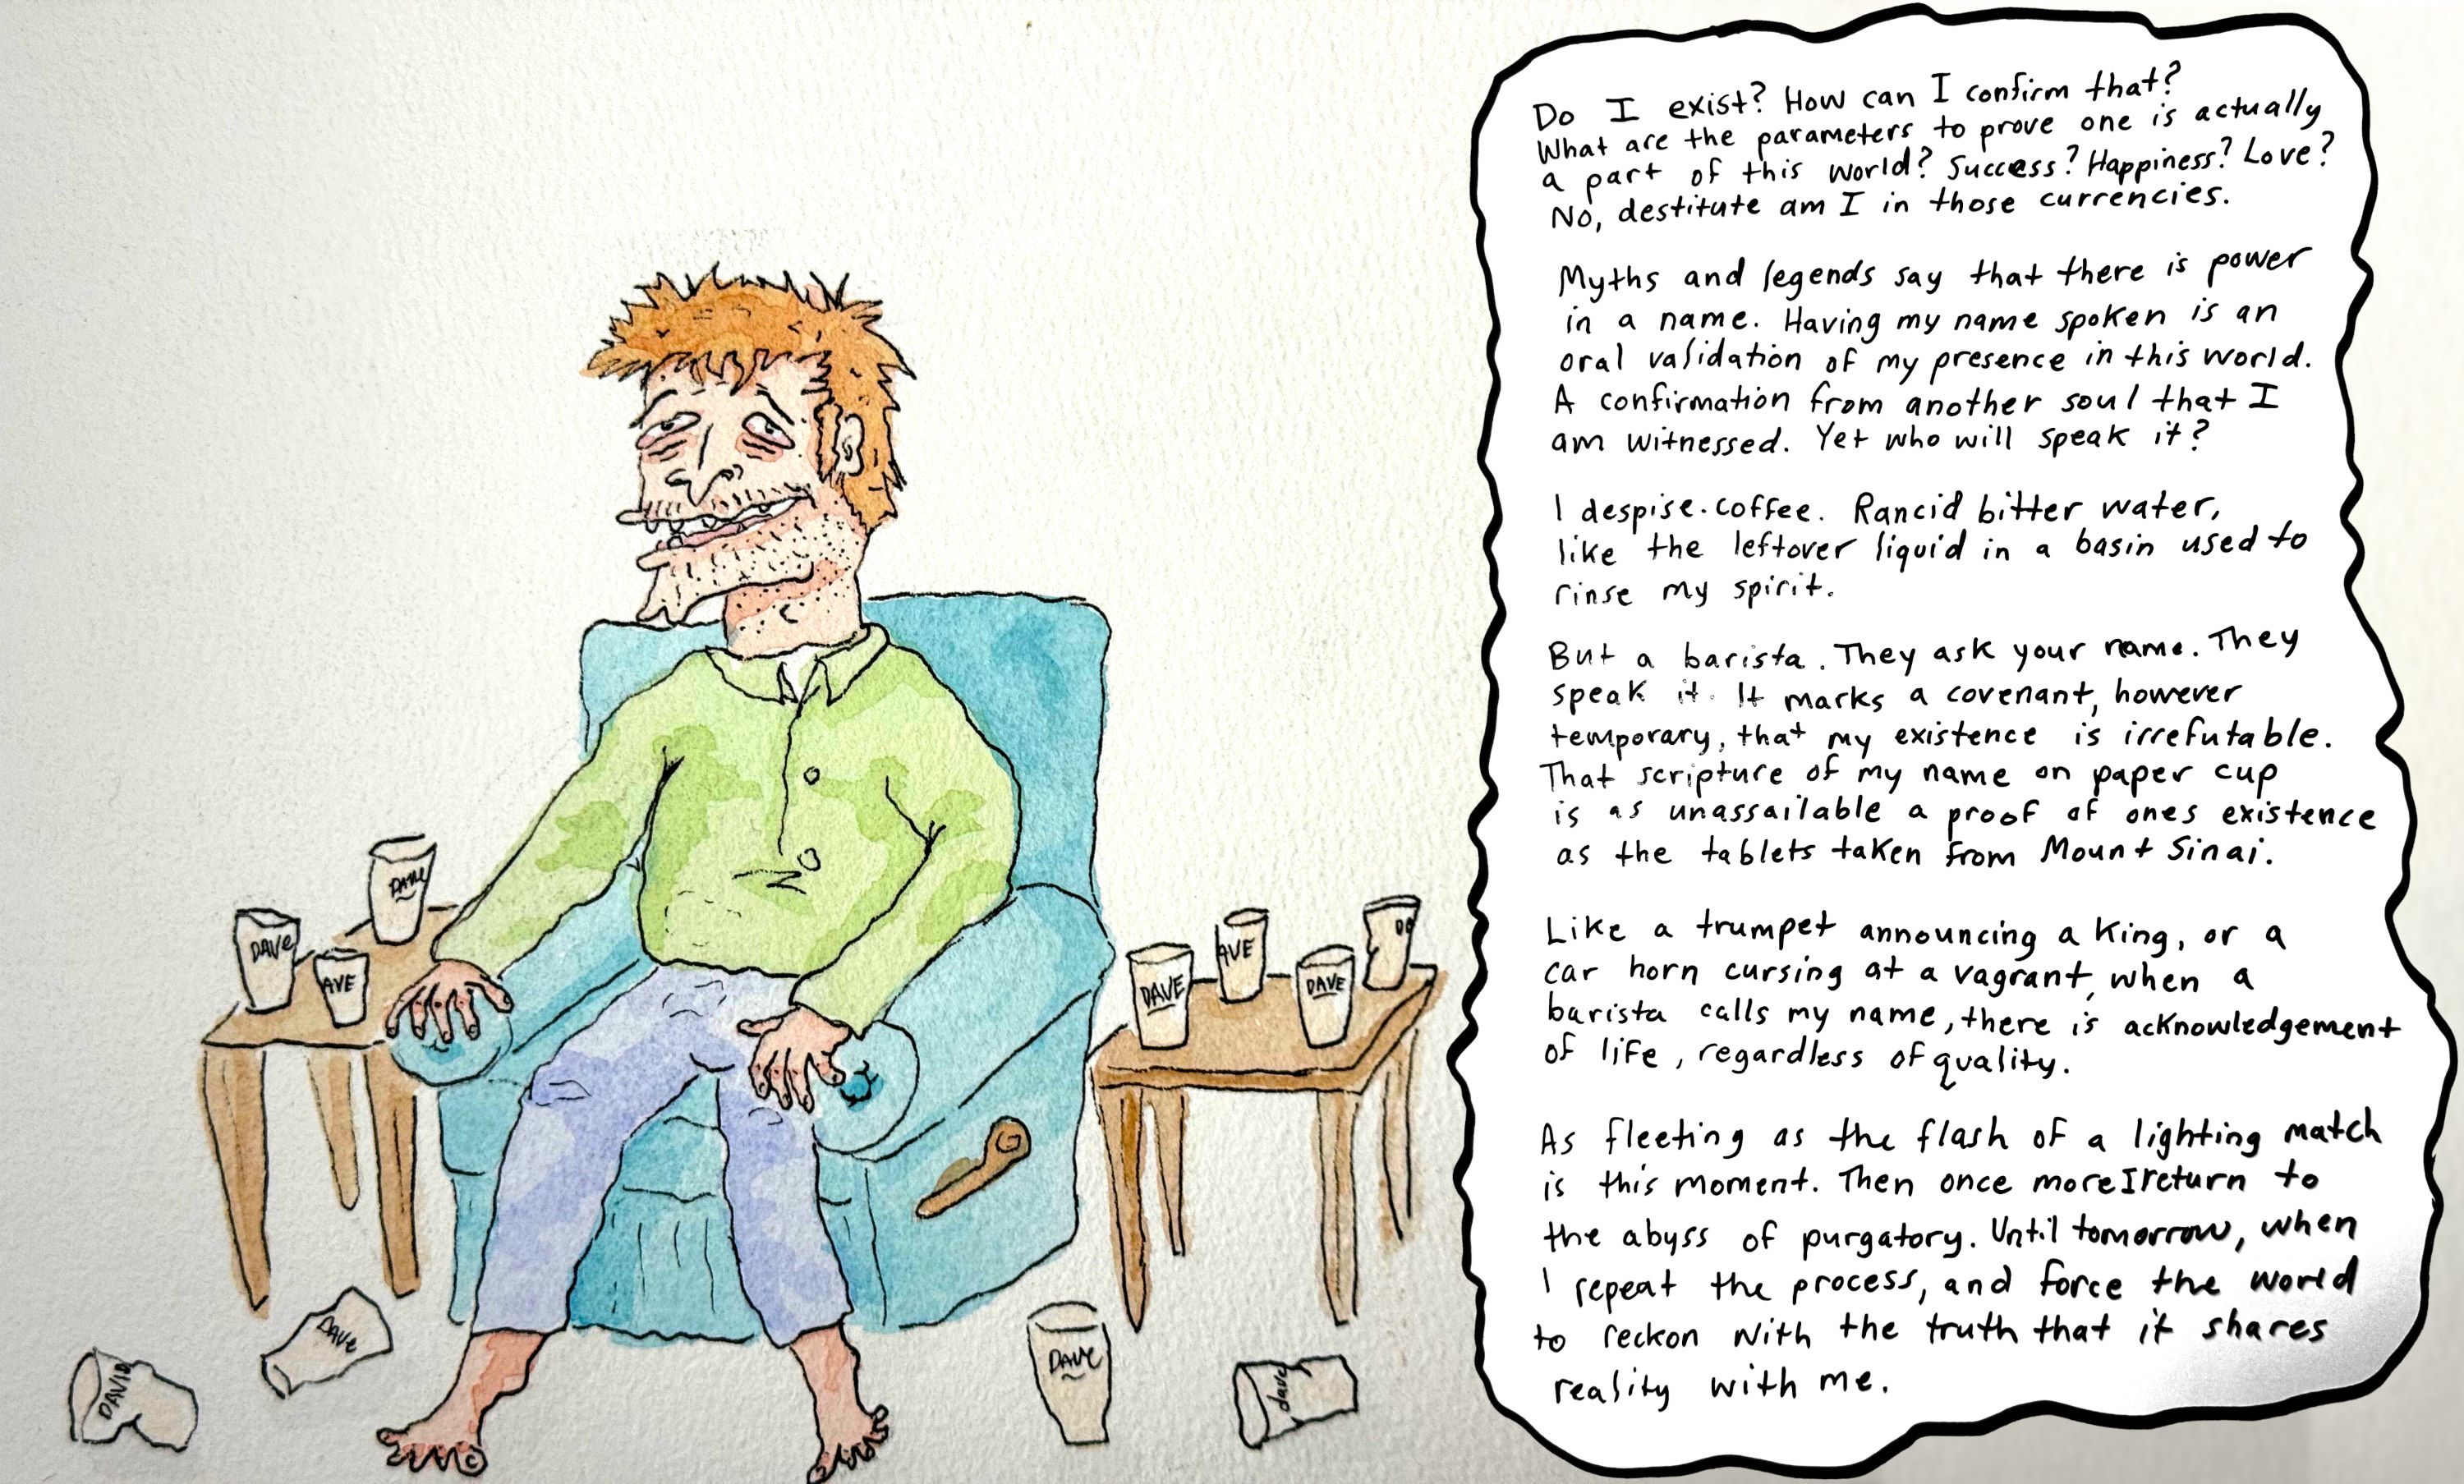 Do I exist? How can I confirm that?
What are the parameters to prove one is actually
a part of this world? Success? Happiness? Love?
No, destitute am I in those currencies.
Myths and legends say that there is power
in a name. Having my name spoken is an
oral validation of my presence in this world.
A confirmation from another soul that I
am witnessed. Yet who will speak it?
I despise. coffee. Rancid bitter water,
like the leftover liquid in a basin used to
rinse my spirit.
But a barista. They ask your name. They
speak it. It marks a covenant, however
temporary, that my existence is irrefutable.
That scripture of my name on paper cup
is as unassailable a proof of ones existence
as the tablets taken from Mount Sinai.
Like a trumpet announcing a King, or a
car horn cursing at a vagrant, when a
barista calls my name, there is acknowledgement
of life, regardless of quality.
As fleeting as the flash of a lighting match
is this moment. Then once more I return to
the abyss of purgatory. Until tomorrow, when
I repeat the process, and force the world
to reckon with the truth that it shares
reality with me.
DAVE
DAVe
AVE
DAVE
AVE
DAVE
DO
DAVID
DAVe
DAVe
dave